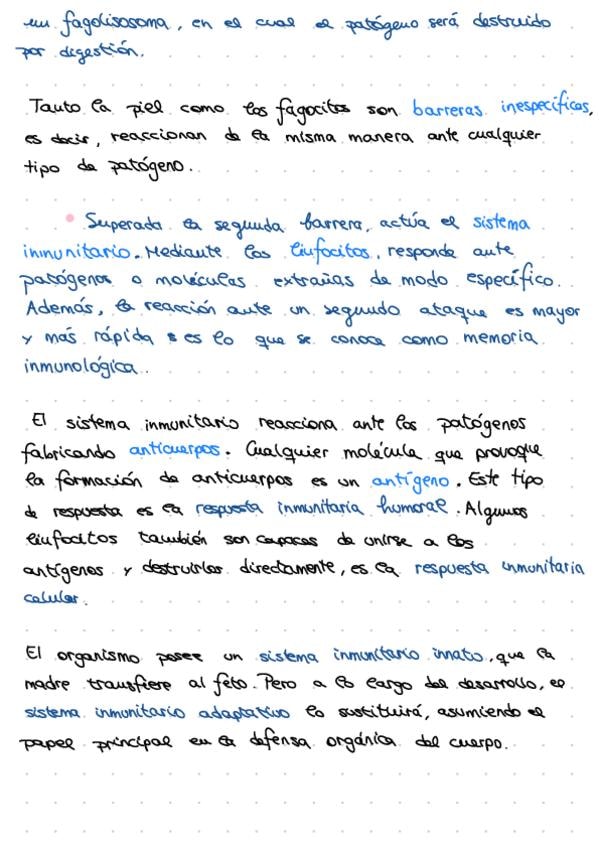 un fagolisosoma, en el cual el patógeno será destruido
por digestión.
Tanto la piel como los fagocitos son barreras inespecíficas,
es decir, reaccionan de la misma manera ante cualquier
tipo de patógeno.
• Superada la segunda barrera, actúa el sistema
inmunitario. Mediante los linfocitos, responde ante
patógenos o moléculas extrañas de modo específico.
Además, la reacción ante un segundo ataque es mayor
y más rápida es lo que se conoce como memoria
inmunológica.
El sistema inmunitario reacciona ante los patógenos
fabricando anticuerpos. Cualquier molécula que provoque
la formación de anticuerpos es un antígeno. Este tipo
de respuesta es la respuesta inmunitaria humoral. Algunos
linfocitos también son capaces de unirse a los
antígenos y destruirlos directamente, es la respuesta inmunitaria
celular.
El organismo posee un sistema inmunitario innato, que la
madre transfiere al feto. Pero a lo largo del desarrollo, el
sistema inmunitario adaptativo lo sustituirá, asumiendo el
papel principal en la defensa orgánica del cuerpo.